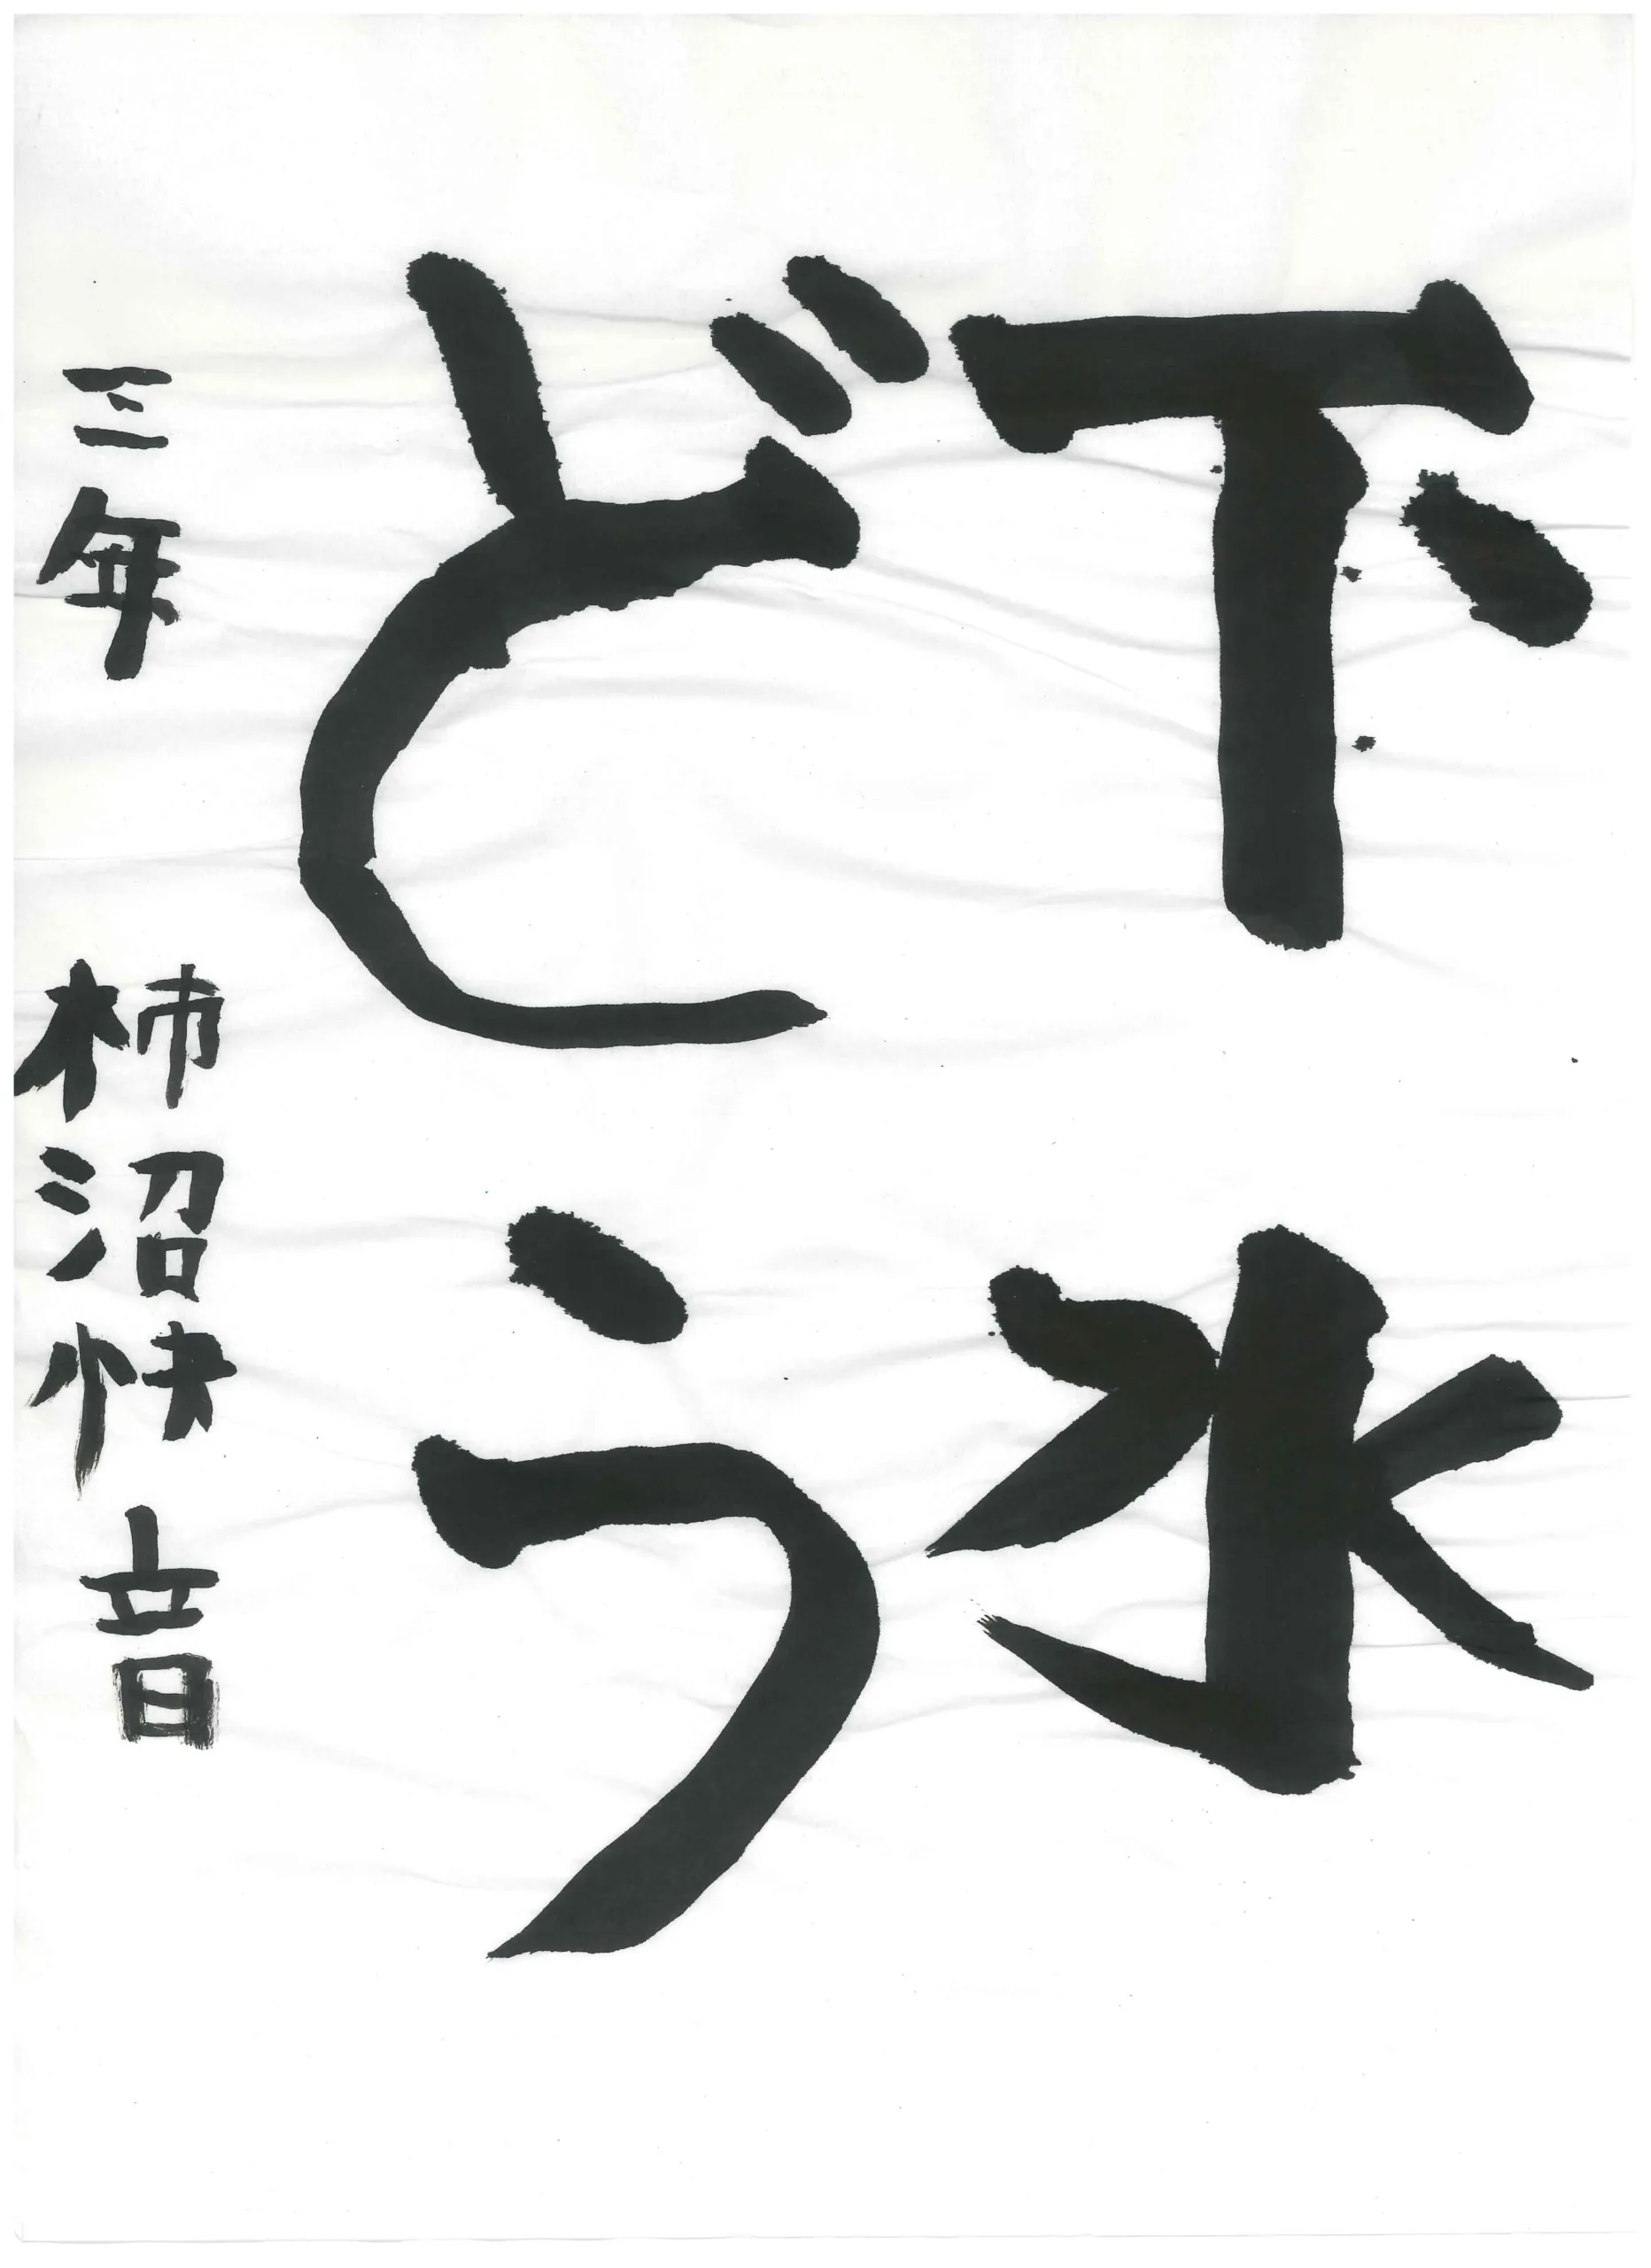 下水
どう
三年 柿沼快音